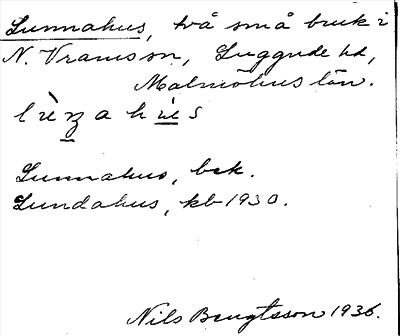 Lunnahus, två små bruk i
N. Vramson, Luggude hd,
Malmöhus län.
Lunnahus, bsk.
Lundahus, kb 1930.
Nils Bengtsson 1936.